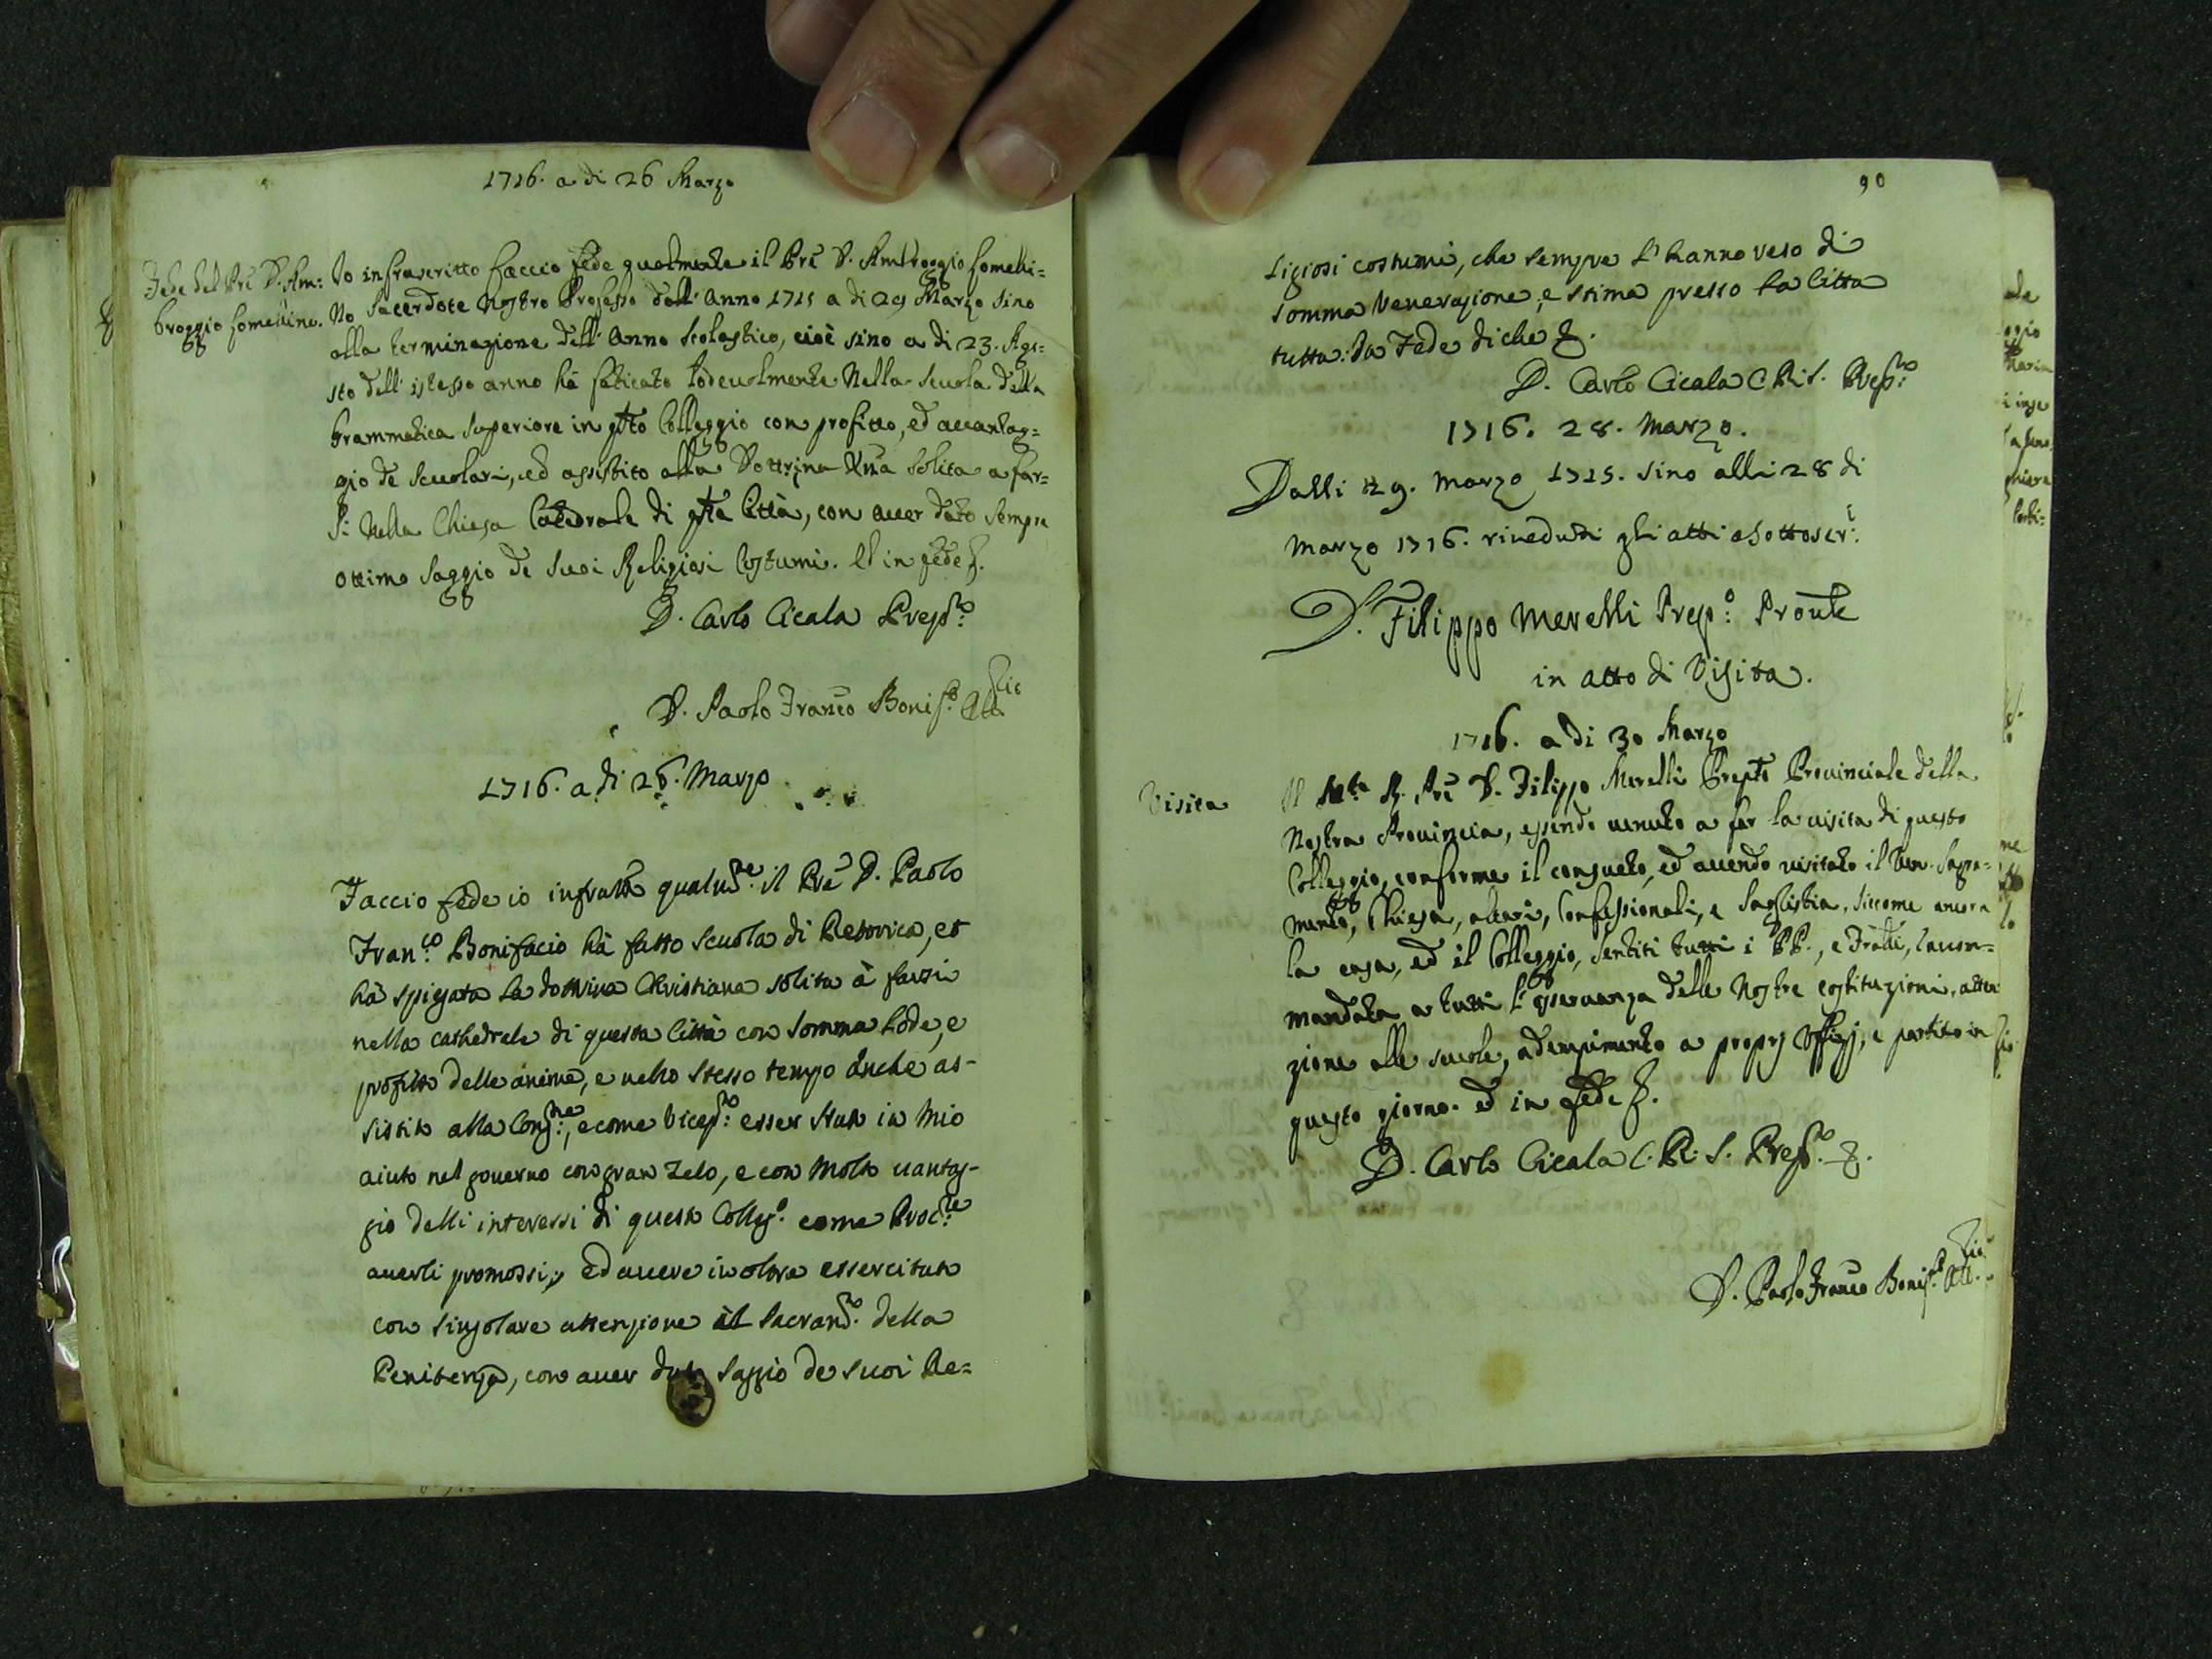 1716. a di 26 Marzo
Fede del Pre D. Am:
broggio Lomellino.
Io infrascritto faccio fede qualmente il Pre D. Ambroggio Lomelli=
no Sacerdote nostro Professo dall' Anno 1715 a di 29 Marzo sino
alla terminazione dell' Anno scolastico, cioè sino a di 23. Ago=
sto dell' istesso anno hà faticato lodevolmente nella scuola della
Grammatica Superiore in qto Colleggio con profitto, ed avantag=
gio de Scuolari, ed assistito alla Dottrina Xna solita a far=
si nella Chiesa Catedrale di qta Città, con aver dato sempre
ottimo saggio de suoi Religiosi Costumi. Ed in fede &.
D. Carlo Cicala Prepto.
D. Paolo Franco Bonifo. Att.
1716. a di 26. Marzo
Faccio fede io infratto qualmte. il Pre D. Paolo
Franco. Bonifacio hà fatto scuola di Retorica, et
hà spiegata la dottrina Christiana solita à farsi
nella cathedrale di questa Città con somma lode, e
profitto delle anime, e nello stesso tempo anche as-
sistito alla Congne:, e come Vicepto: esser stato in mio
aiuto nel governo con gran zelo, e con molto vantag-
gio delli interessi di questo Collego. come Procre:
averli promossi; Ed avere in oltre essercitato
con singolare attenzione il Sacramto. della
Penitenza, con aver dato saggio de suoi Re=
90
ligiosi costumi, che sempre l' hanno reso di
somma venerazione, e stima presso la Citta
tutta: In Fede di che &.
D. Carlo Cicala C. R. S. Prepto:
1716. 28. Marzo.
Dalli 29. Marzo 1715. sino alli 28 di
Marzo 1716. riveduti gli atti e sottoscri:
D. Filippo Merelli Prepo: Prouле
in atto di Visita.
1716. a di 30 Marzo
Visita
Il Mto R. Pre D. Filippo Merelli Prepto Provinciale della
Nostra Provincia, essendo venuto a far la visita di questo
Colleggio, conforme il consueto, ed avendo visitato il Ven. Sagra=
mento, Chiesa, altari, Confessionali, e Sagristia, siccome ancora
la casa, ed il Colleggio, sentiti tutti i PP., e Fratti, raccom=
mandata a tutti l' osservanza delle nostre costituzioni, atten
zione alle scuole, adempimento a proprj Uffizj, e partito in
questo giorno. ed in fede &.
D. Carlo Cicala C. R. S. Prepto. &.
D. Paolo Franco Bonifo. Att.